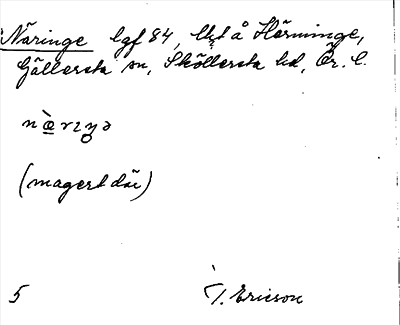 Näringe lgf 84, lht å Härminge,
Gällersta sn, Sköllersta hd, Ör. l.
(magert där)
5 T. Ericson